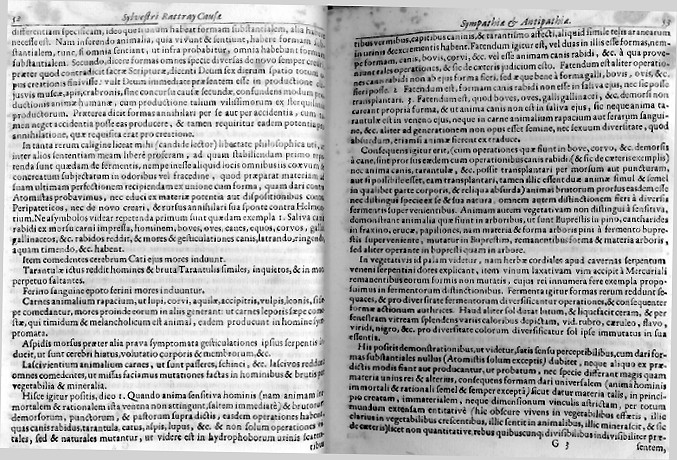 52 Sylvestri Rattray Causæ
differentiam specificam, ideoque unum habeat formam substantialem, alia habere
necesse est. Nam inferendo animalia, quia vivunt & sentiunt, habere formam sub-
stantialem, tunc, si omnia sentiant, ut infra probabitur, omnia habebunt formam
substantialem. Secundo, dicere formas omnes specie diversas de novo semper creari,
præter quod contradicit sacræ Scripturæ, dicenti Deum sex dierum spatio totum
pus creationis finivisse: vult Deum immediate præsentem esse in productione
jusvis muscæ, apis, crabronis, sine concursu causæ secundæ, confundens modum
ductionis animæ humanæ, cum productione talium vilissimorum ex
productorum. Præterea dicit formas annihilari per se aut per accidentia, cum
men neget accidentia posse eas producere, & tamen requiritur eadem potentia
annihilatione, quæ requisita erat pro creatione.
In tanta rerum caligine liceat mihi (candide lector) libertate philosophica uti,
inter alios sententiam meam libere proferam, ad quam stabiliendam primo
renda sunt quædam de fermentis, nempe inesse aliquid iocis omnibus is
creatum subjectarum in odoribus vel fracedine, quod præparat materiam
suam ultimam perfectionem recipiendam ex unione cum forma, quam dari contra
Atomistas probavimus, nec educi ex materiæ potentia aut dispositionibus contra
Peripatetitos, nec de novo creari, & cursus annihilari sua sponte contra
tium. Ne asymbolos videar repetenda primum sunt quædam exempla 1. Saliva canis
rabidi ex morsu carni impressa, hominem, boves, oves, canes, equos, corvos, galli
gallinaceos, &c. rabidos reddit, & mores & gesticulationes canis, latrando, ringendo,
aquam timendo, &c. habent.
Item comedentes cerebrum Cati ejus mores induunt.
Tarantulæ ictus reddit homines & bruta Tarantulis similes, inquietos, & in motu
perpetuo saltantes.
Ferino sanguine epoto ferini mores induuntur.
Carnes animalium rapacium, ut lupi, corvi, aquilæ, accipitris, vulpis, leonis, si
pe comedantur, mores proinde eorum in aliis generant: ut carnes leporis sæpe come-
stæ, qui timidum & melancholicum est animal, eadem producunt in homine sym-
ptomata.
Aspidis morsus præter alia prava symptomata gesticulationes ipsius serpentis in-
ducit, ut sunt cerebri hiatus, volutatio corporis & membrorum, &c.
Lascivientium animalium carnes, ut sunt passeres, schinci, &c. lascivos reddunt
omnes comedentes, ut missas faciamus mutationes factas in hominibus & brutis per
vegetabilia & mineralia.
Hisce igitur positis, dico 1. Quando anima sensitiva hominis (nam animam im-
mortalem & rationalem ista ventona non attingunt, saltem immediate) & brutorum
demorsorum, punctorum, & pastorum supra dictis, easdem operationes habeant,
quas canis rabidus, tarantula, catus, aspis, lupus, &c. & non solum operationes vi-
tales, sed & naturales mutantur, ut videre est in hydrophoborum urinis scaten-
tibus
Sympathiæ & Antipathiæ. 53
tibus vermibus, capitibus caninis, & tarantismo affecti, aliquid simile telis aranearum
in urinis & excrementis habent. Fatendum igitur est, vel duas in illis esse formas, nem-
pe formam, canis, bovis, corvi, &c. vel esse animam canis rabidi, &c. à qua prove-
niunt tales operationes, & sic de cæteris judicium esto. Fatendum est aliter operatio-
nes canis rabidi non ab ejus forma fieri, sed æque bene à forma galli, bovis, ovis, &c.
fieri posse. 2. Fatendum est, formam canis rabidi non esse in saliva ejus, nec sic posse
transplantari. 3. Fatendum est, quod boves, oves, galli gallinacei, &c. demorsi non
careant propria forma, & ut anima canis non est in saliva ejus, sic neque anima ta-
rantulæ est in veneno ejus, neque in carne animalium rapacium aut serarum sangui-
ne, &c. aliter ad generationem non opus esset semine, nec sexuum diversitate, quod
absurdum, etiamsi animæ fierent ex traduce.
Consequens igitur erit, (cum operationes quæ fiunt in bove, corvo, &c. demorsis
à cane, sint prorsus eædem cum operationibus canis rabidi (& sic de cæteris exemplis)
nec anima canis, tarantulæ, &c. possit transplantari per morsum aut puncturam,
aut si possibile esset, eam transplantari, tamen illic essent duæ animæ simul & semel
in qualibet parte corporis, & reliqua absurda) animas brutorum prorsus easdem esse
nec distingui specie ex se & sua natura, omnem autem distinctionem fieri à diversis
fermentis supervenientibus. Animam autem vegetativam non distingui à sensitiva,
demonstrant animalia quæ fiunt in arboribus, ut sunt Buprestis in pino, cantharides
in fraxino, erucæ, papiliones, nam materia & forma arboris pini à fermento bupre-
stis superveniente, mutatur in Buprestim, remanentibus forma & materia arboris,
sed aliter operante in bupresti quam in arbore.
In vegetativis id palam videtur, nam herbæ cordiales apud cavernas serpentum
veneni serpentini dotes explicant, item vinum laxativam vim accipit à Mercuriali
remanentibus eorum formis non mutatis, cujus rei innumera fere exempla propo-
suimus in fermentorum distinctionibus. Fermenta igitur formas rerum reddunt se-
quaces, & pro diversitate fermentorum diversificantur operationes, & consequenter
formæ actionum auctrices. Haud aliter sol dat lutum, & liquefacit ceram, & per
fenestram vitream splendens variis coloribus depictam, vid. rubro, cæruleo, flavo,
viridi, nigro, &c. pro diversitate colorum diversificatur sol ipse immutatus in sua
essentia.
His positis demonstrationibus, ut videtur, satis sensu perceptibilibus, cum dari for-
mas substantiales nullus (Atomistis solum exceptis) dubitet, neque aliquo ex præ-
dictis modis fiant aut producantur, ut probatum, nec specie differant magis quam
materia unius rei & alterius, consequens formam dari universalem (anima hominis
immortali & rationali semel & semper excepta) sicut datur materia talis, in princi-
pio creatam, immaterialem, neque dimensionum vinculis astrictam, per totum
mundum extensam entitativè (hic obscure vivens in vegetabilibus essatis, illic
clarius in vegetabilibus crescentibus, illic sentit in animalibus, illic minerascit, & sic
de cæteris) licet non quantitative, rebus quibuscunque divisibilibus indivisibiliter præ-
G 3 sentem,